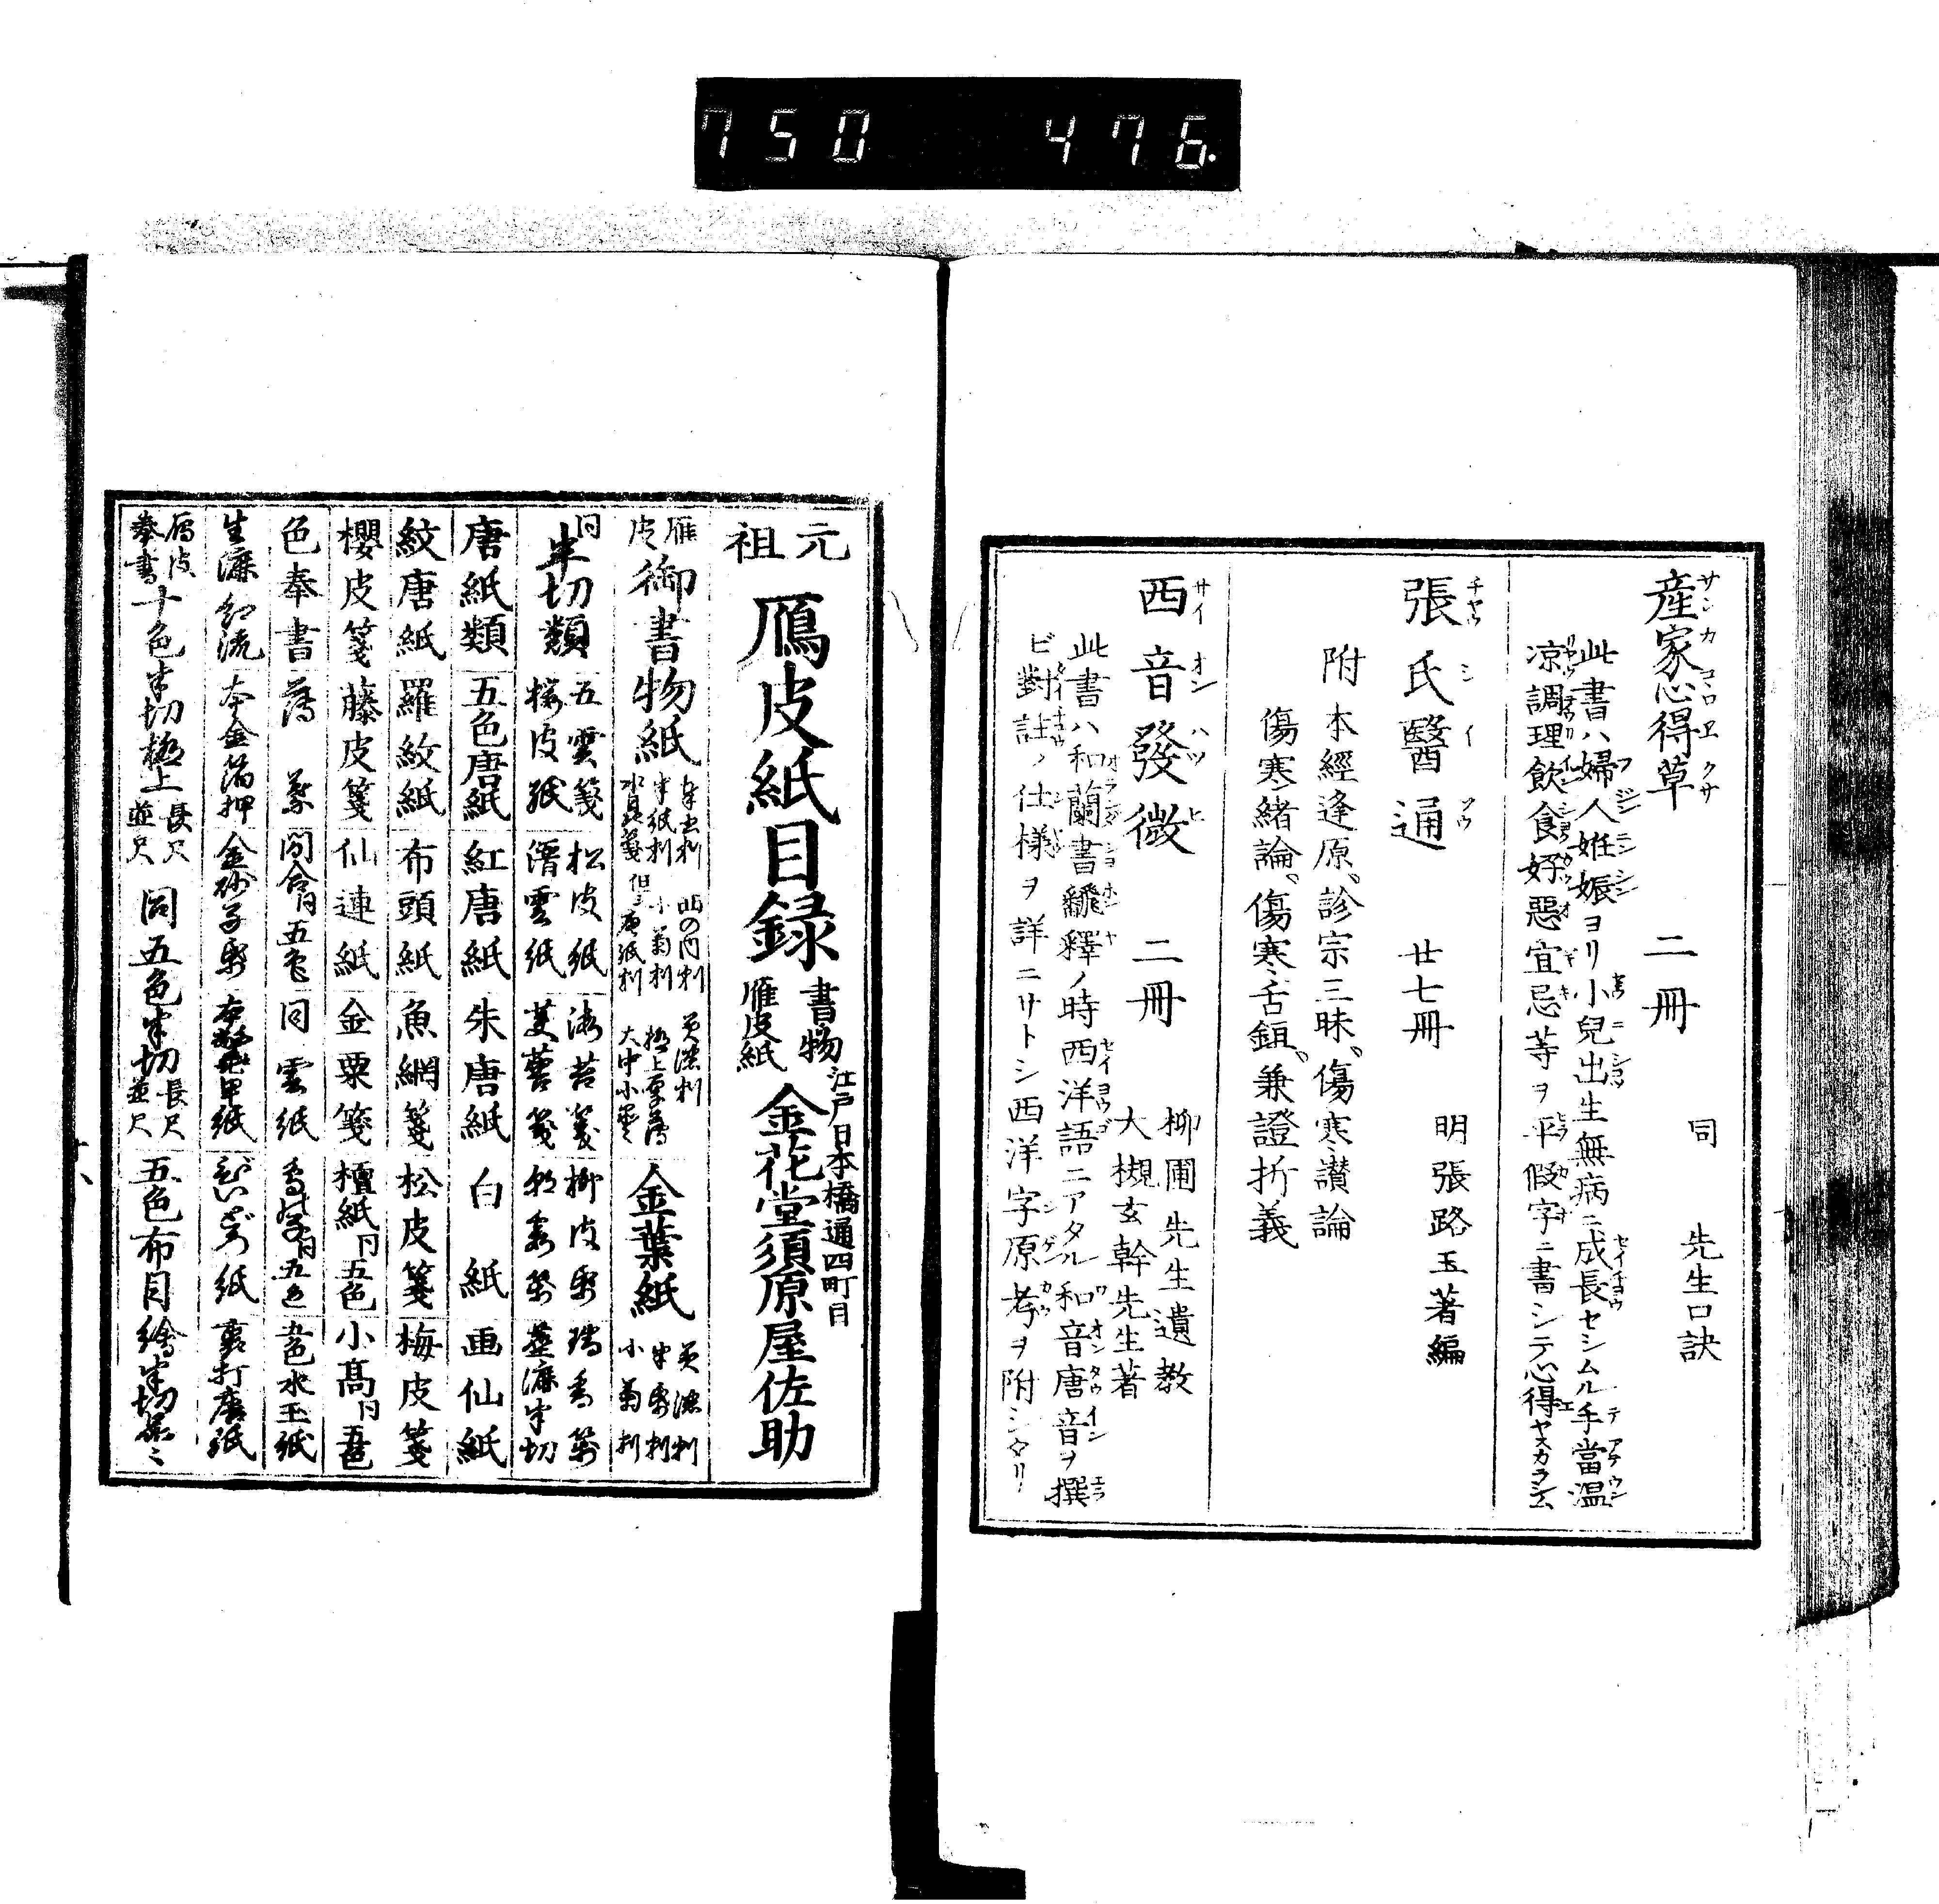 750 476.
産家心得草 二冊 同 先生口訣
此書ハ婦人姙娠ヨリ小兒出生無病ニ成長セシムル手當温
凉調理飲食好惡宜忌等ヲ平假字ニ書シテ心得ヤスカラシム
張氏醫通 廿七冊 明張路玉著編
附本經逢原、診宗三昧、傷寒讃論
傷寒緒論、傷寒舌鉏、兼證折義
西音發微 二冊 柳圃先生遺教
大槻玄幹先生著
此書ハ和蘭書飜釋ノ時西洋語ニアタル和音唐音ヲ撰
ビ對註ノ仕樣ヲ詳ニサトシ西洋字原考ヲ附シタリ
元祖 鴈皮紙目録 書物 雁皮紙 江戸日本橋通四町目 金花堂須原屋佐助
雁皮 御書物紙 半紙判 小菊判 美濃判 極上厚薄 金葉紙 美濃判 半紙判 小菊判
同半切類 五雲箋 櫻皮紙 松皮紙 海苔箋 柳皮
唐紙類 五色唐紙 紅唐紙 朱唐紙 白紙 画仙紙
紋唐紙 羅紋紙 布頭紙 魚網箋 松皮箋 梅皮箋
櫻皮箋 藤皮箋 仙連紙 金粟箋 檀紙 同五色 小髙 同五色
色奉書 薄 間合 同五色 同雲紙 五色水玉紙
生漉 紅流 本金箔押 金砂子 裏打唐紙
鴈皮 奉書 十色半切極上 長尺 並尺 同五色半切 長尺 並尺 五色布目 繪半切品々